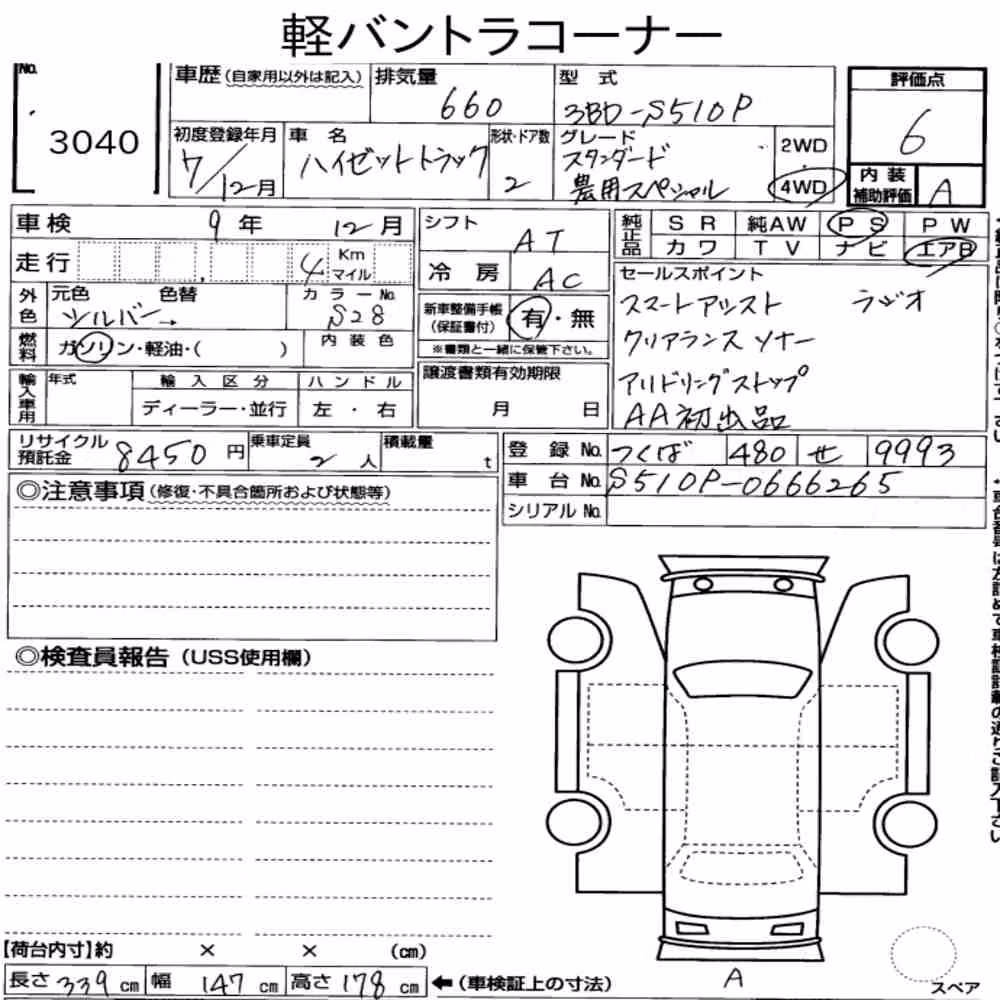 軽バントラコーナー
No.
3040
車歴(自家用以外は記入)
排気量
660
型 式
3BD-S510P
初度登録年月
7/12月
車 名
ハイゼットトラック
形状・ドア数
2
グレード
スタンダード
農用スペシャル
2WD
4WD
評価点
6
内装補助評価
A
車検 9年 12月
走行 4 Km マイル
外色
元色 色替
シルバー→
カラーNo.
S28
燃料
ガソリン・軽油・( )
内装色
輸入車用
年式
輸入区分
ディーラー・並行
ハンドル
左・右
シフト
AT
冷房
AC
新車整備手帳(保証書付)
有・無
※書類と一緒に保管下さい。
譲渡書類有効期限
月 日
純正品
SR 純AW PS PW
カワ TV ナビ エアB
セールスポイント
スマートアシスト ラジオ
クリアランスソナー
アイドリングストップ
AA初出品
リサイクル預託金 8450円
乗車定員 2人
積載量 t
登録No. つくば 480 せ 9993
車台No. S510P-0666265
シリアルNo.
◎注意事項(修復・不具合箇所および状態等)
◎検査員報告(USS使用欄)
【荷台内寸】約 × × (cm)
長さ339cm 幅147cm 高さ178cm ←(車検証上の寸法)
A
スペア